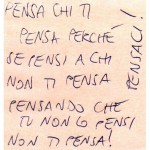 PENSA CHI TI
PENSA PERCHÈ
SE PENSI A CHI
NON TI PENSA
PENSANDO CHE
TU NON LO PENSI
NON TI PENSA!
PENSACI!